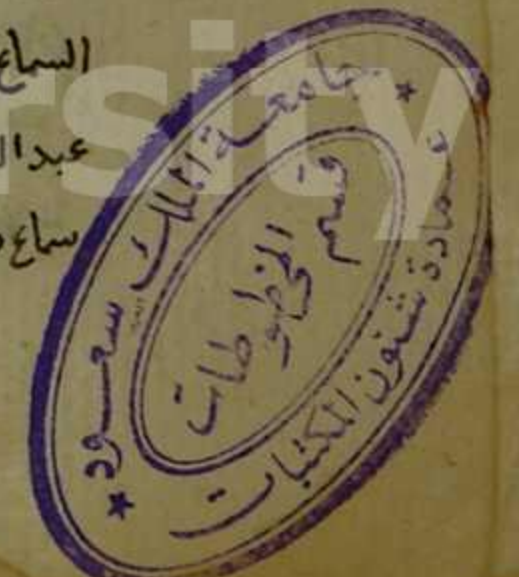 السماع
عبدال
سماع
rsity
جامعة الملك سعود
عمادة شئون المكتبات
قسم
المخطوطات